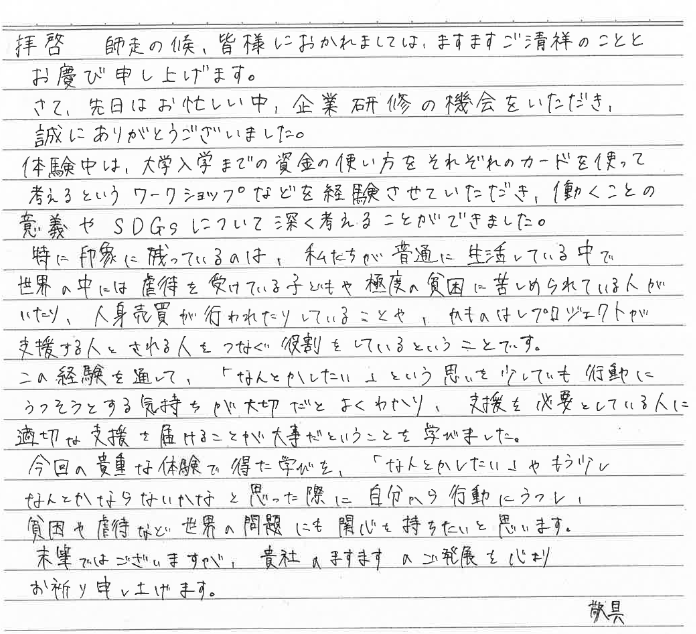 拝啓　師走の候、皆様におかれましては、ますますご清祥のことと
お慶び申し上げます。
さて、先日はお忙しい中、企業研修の機会をいただき、
誠にありがとうございました。
体験中は、大学入学までの資金の使い方をそれぞれのカードを使って
考えるというワークショップなどを経験させていただき、働くことの
意義やSDGsについて深く考えることができました。
特に印象に残っているのは、私たちが普通に生活している中で
世界の中には虐待を受けている子どもや極度の貧困に苦しめられている人が
いたり、人身売買が行われたりしていることや、かものはしプロジェクトが
支援する人とされる人をつなぐ役割をしているということです。
この経験を通して、「なんとかしたい」という思いを少しでも行動に
うつそうとする気持ちが大切だとよくわかり、支援を必要としている人に
適切な支援を届けることが大事だということを学びました。
今回の貴重な体験で得た学びを、「なんとかしたい」やもう少し
なんとかならないかなと思った際に自分から行動にうつし、
貧困や虐待など世界の問題にも関心を持ちたいと思います。
末筆ではございますが、貴社のますますのご発展を心より
お祈り申し上げます。
敬具